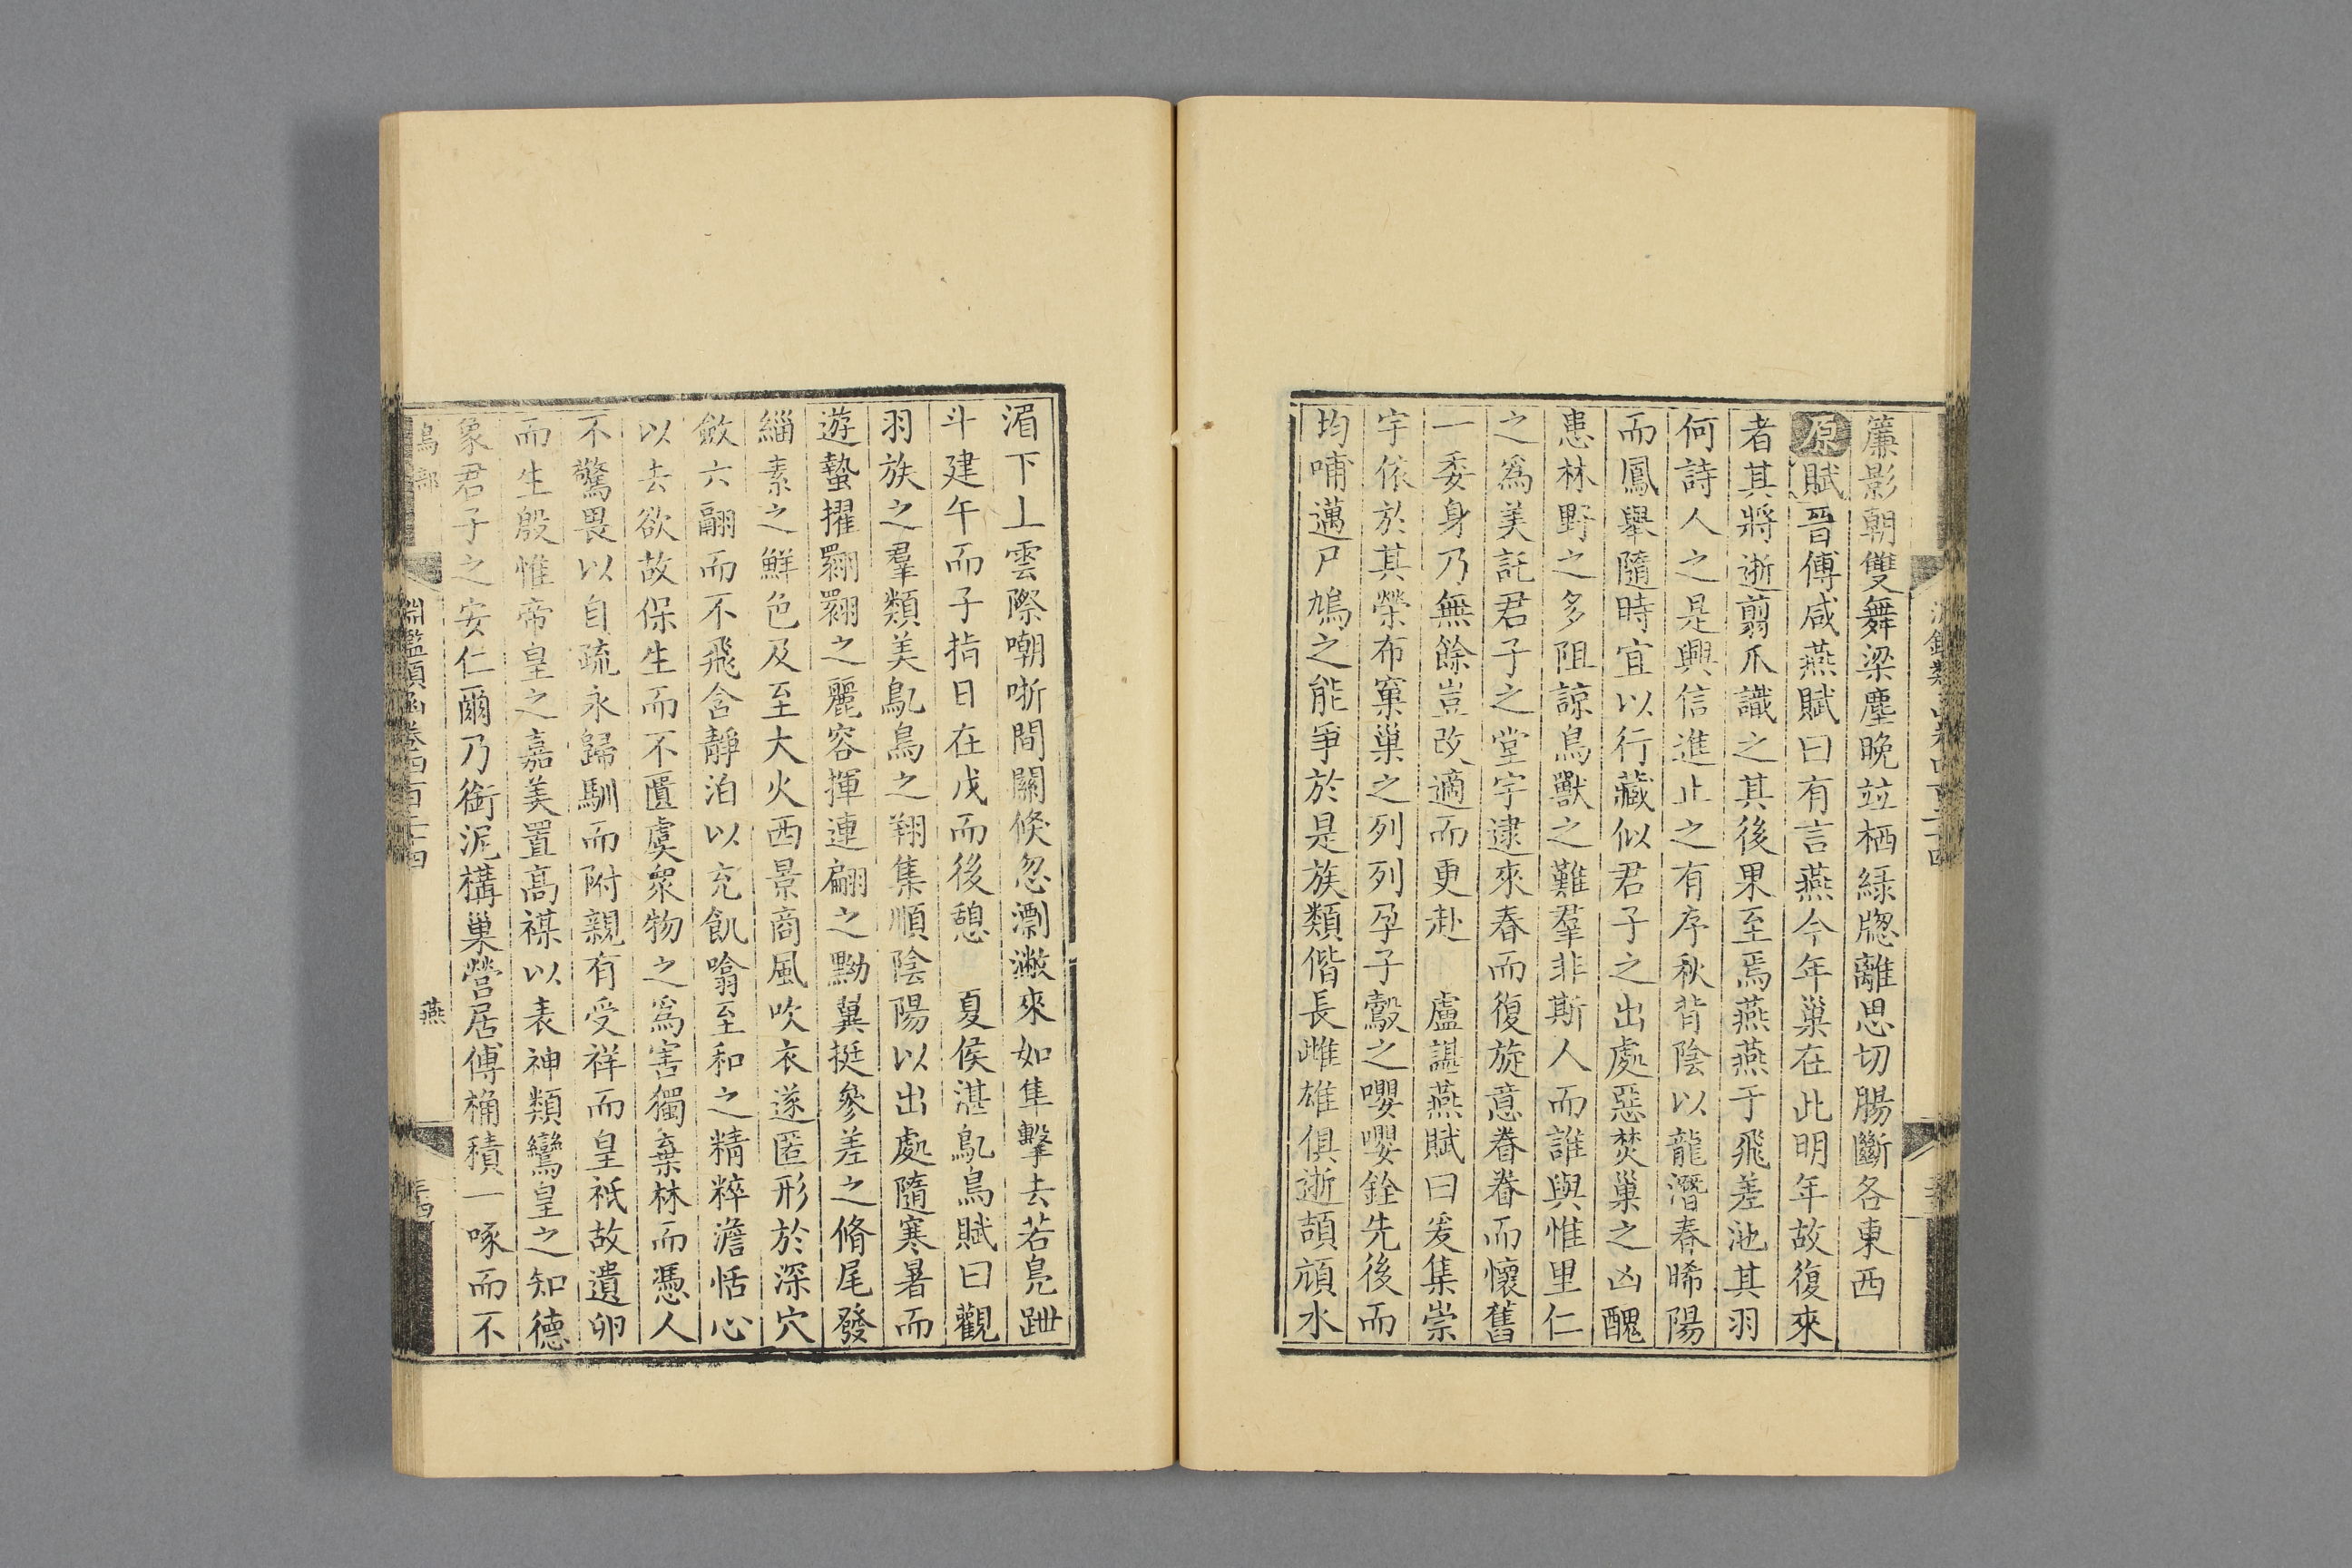 簾影朝雙舞梁塵晚竝栖綠牕離思切腸斷各東西
原賦晉傅咸燕賦曰有言燕今年巢在此明年故復來
者其將逝剪爪識之其後果至焉燕燕于飛差池其羽
何詩人之是興信進止之有序秋背陰以龍潛春晞陽
而鳳舉隨時宜以行藏似君子之出處惡焚巢之凶醜
患林野之多阻諒鳥獸之難羣非斯人而誰與惟里仁
之爲美託君子之堂宇逮來春而復旋意眷眷而懷舊
一委身乃無餘豈改適而更赴 盧諶燕賦曰爰集崇
宇依於其榮布窠巢之列列孕子鷇之嚶嚶銓先後而
均哺邁尸鳩之能爭於是族類偕長雌雄俱逝頡頏水
湄下上雲際嘲哳間關倐忽漂潎來如隼擊去若鳧跇
斗建午而子指日在戊而後憩 夏侯湛鳦鳥賦曰觀
羽族之羣類美鳦鳥之翔集順陰陽以出處隨寒暑而
遊蟄擢翾翾之麗容揮連翩之黝翼挺參差之脩尾發
緇素之鮮色及至大火西景商風吹衣遂匿形於深穴
斂六翮而不飛含靜泊以充飢噏至和之精粹澹恬心
以去欲故保生而不匱虞衆物之爲害獨棄林而憑人
不驚畏以自疏永歸馴而附親有受祥而皇祇故遺卵
而生殷惟帝皇之嘉美置高禖以表神類鸞皇之知德
象君子之安仁爾乃銜泥構巢營居傅桷積一啄而不
鳥部
淵鑑類函卷四百二十四
燕